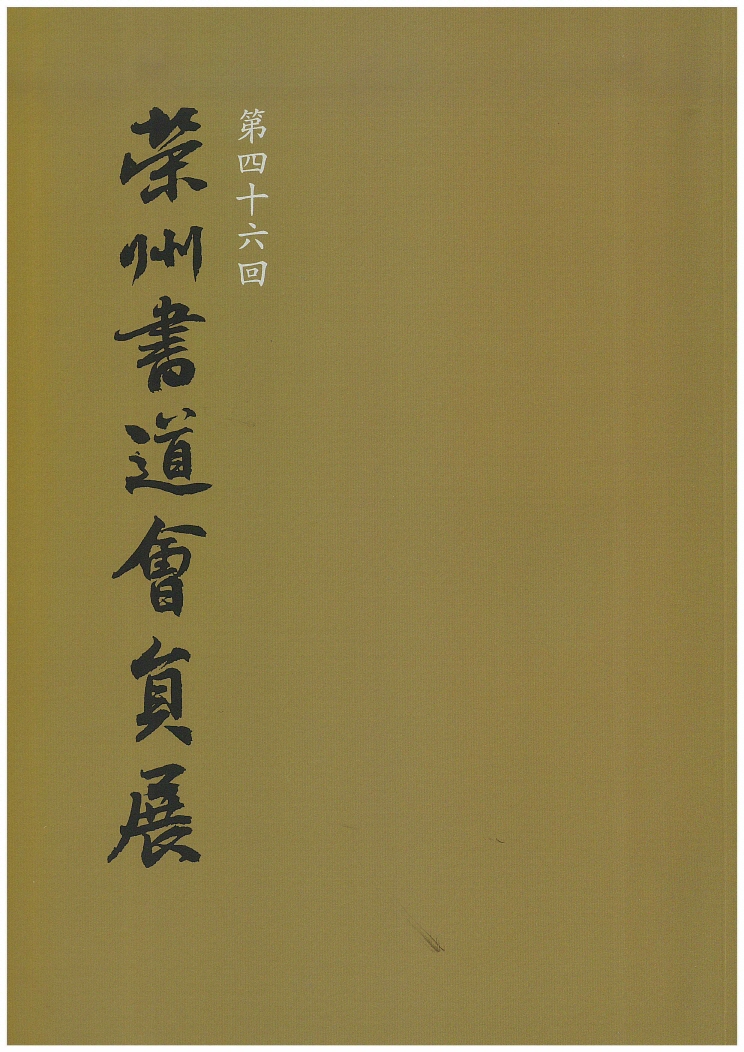 第四十六回
榮州書道會員展